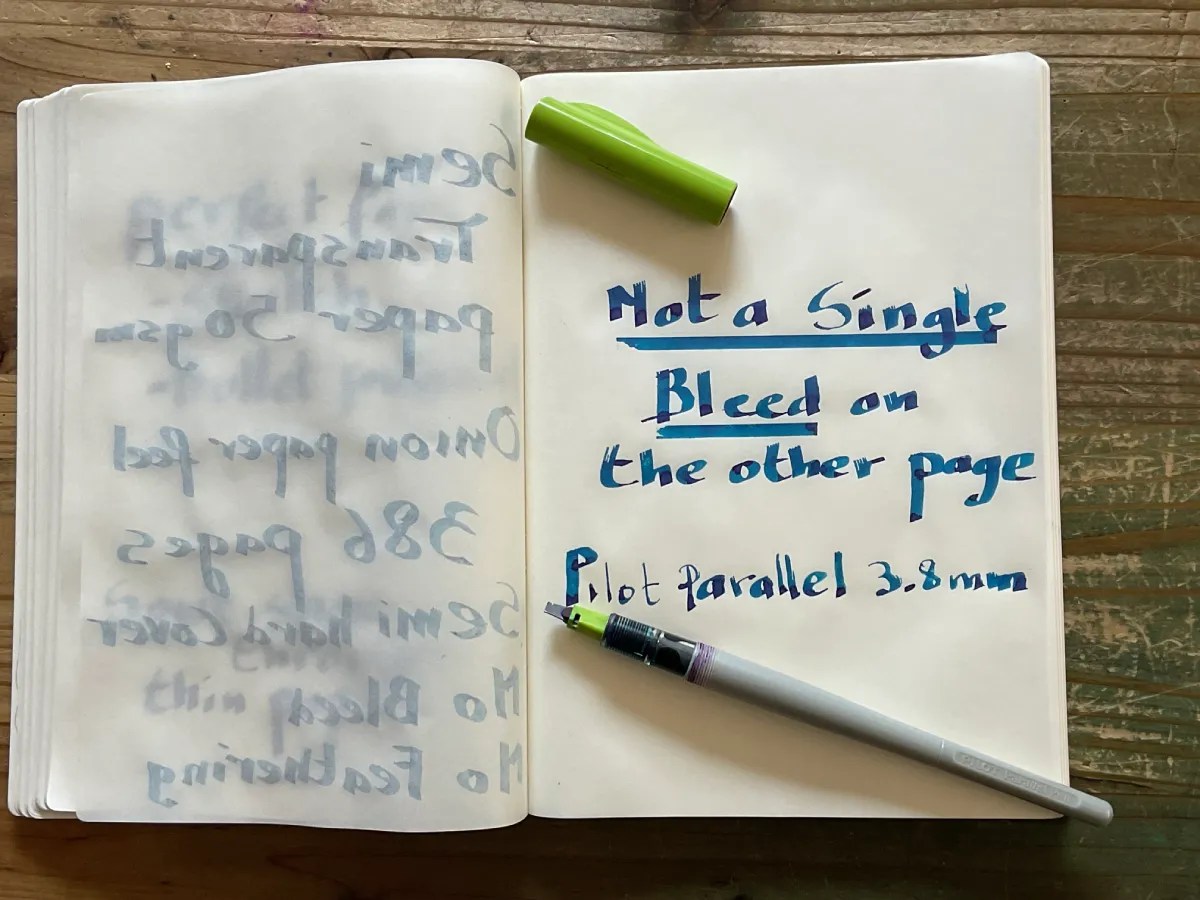 Semi
Transparent
paper 50gsm
Onion paper feel
386 pages
Semi hard Cover
No Bleed
No Feathering
Not a Single
Bleed on
the other page
Pilot parallel 3.8mm